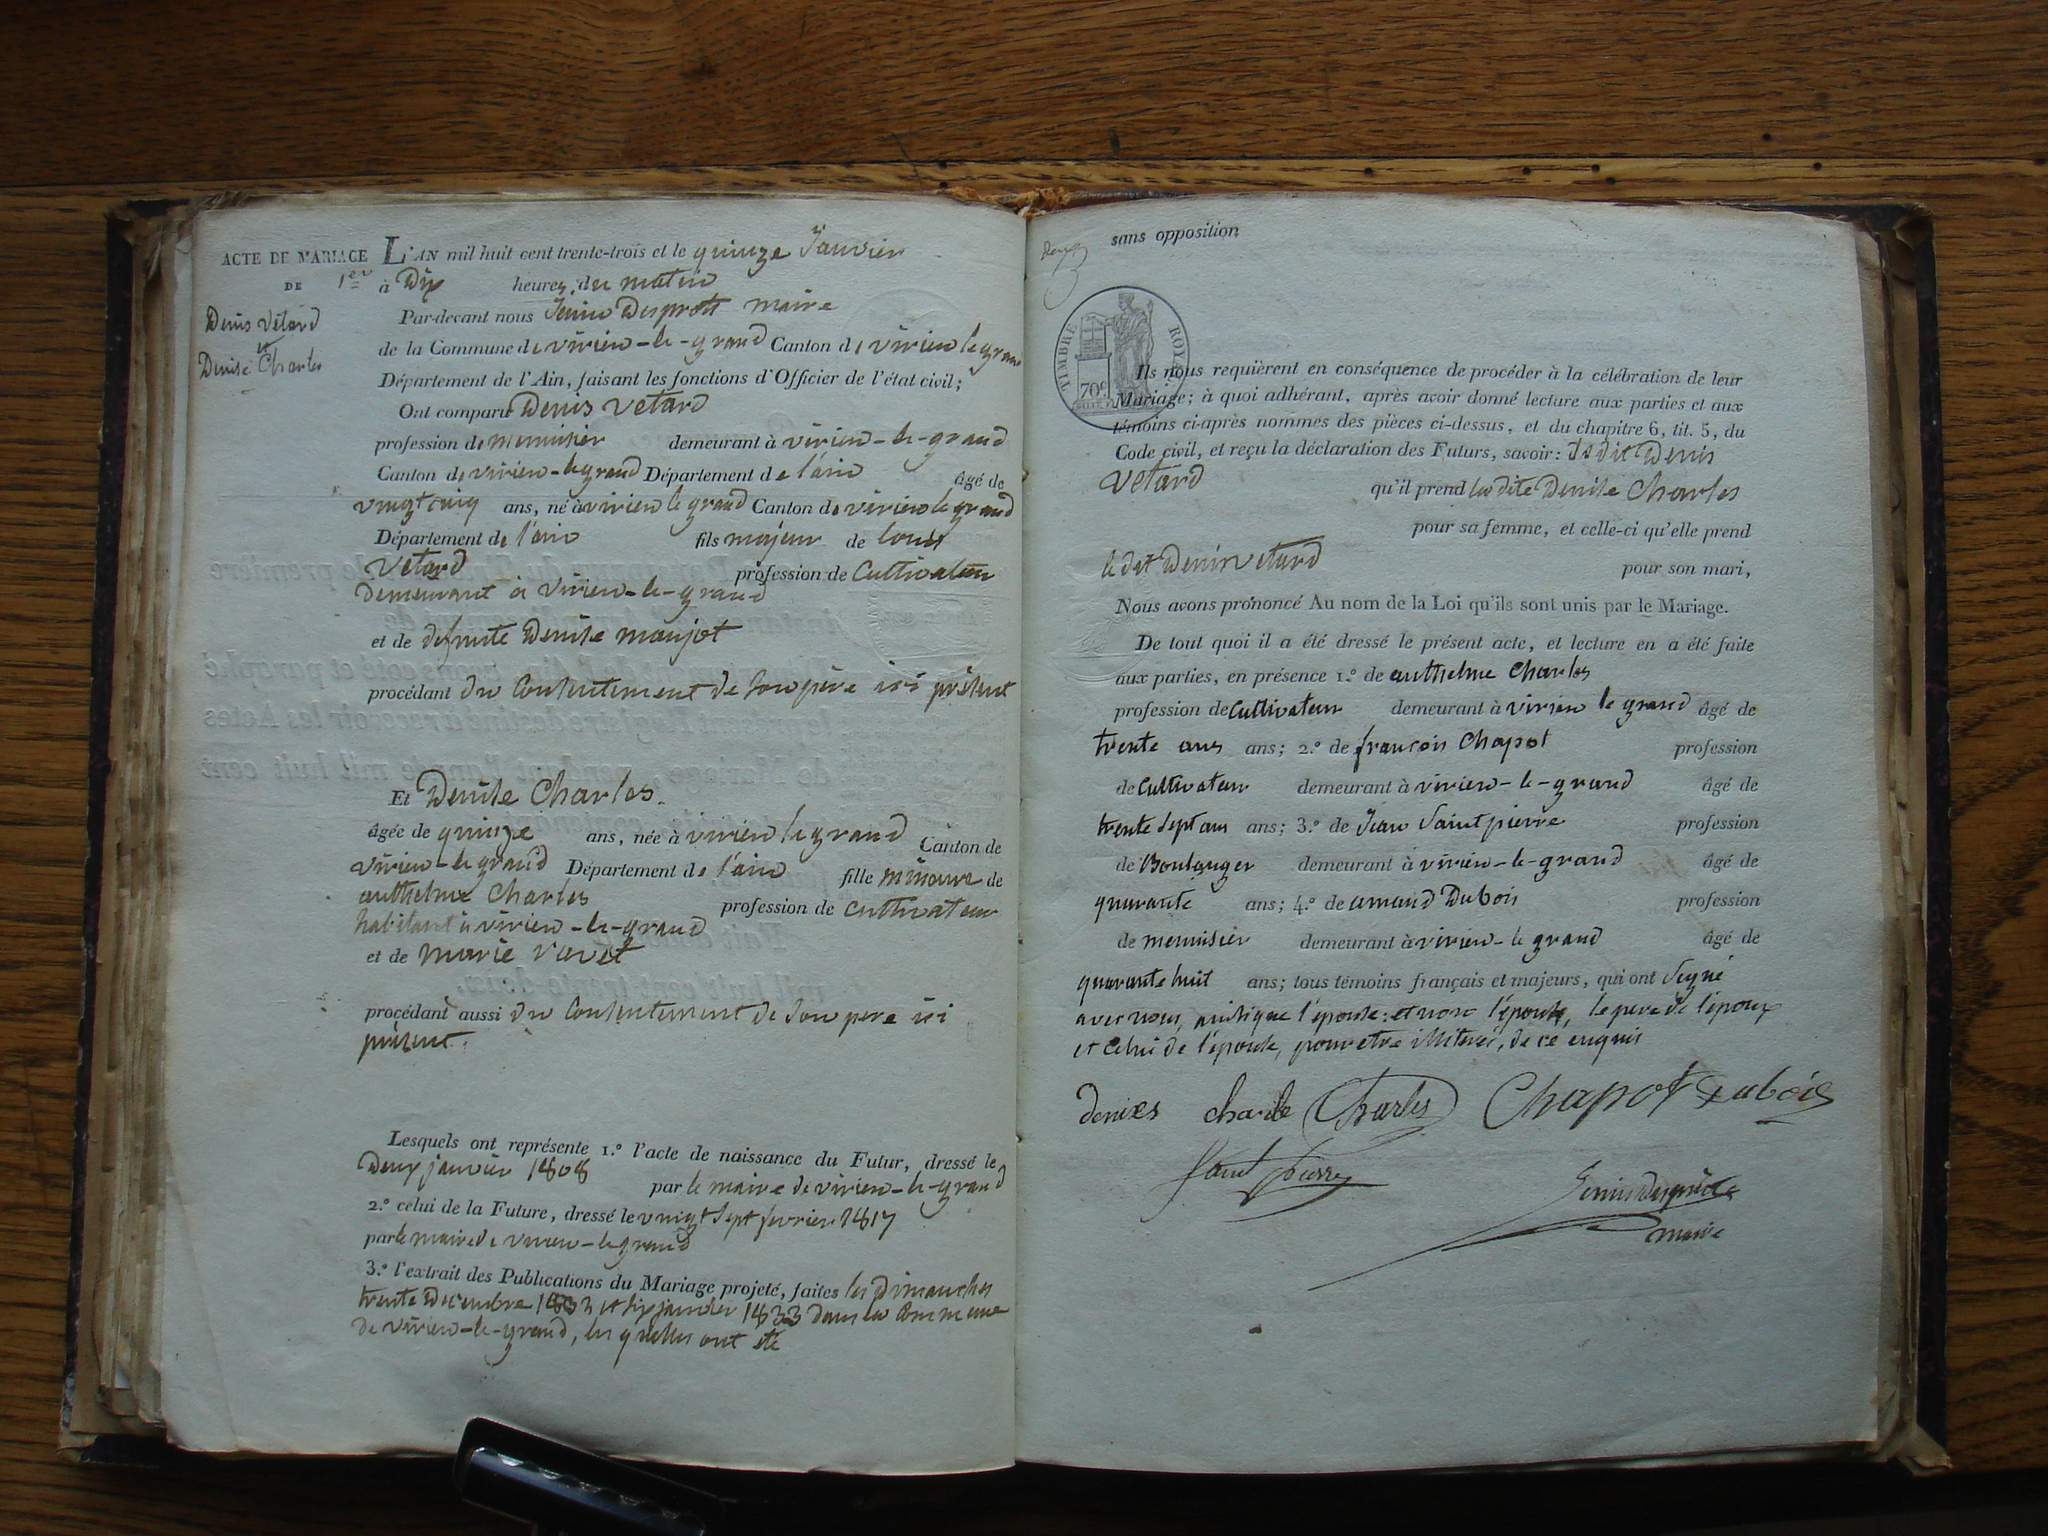 ACTE DE MARIAGE
DE 1er
Denis Vétard
et
Denise Charles
L'AN mil huit cent trente-trois et le quinze Janvier
à Dix heures du matin
Par-devant nous maire
de la Commune de virieu-le-grand Canton de virieu le grand
Département de l'Ain, faisant les fonctions d'Officier de l'état civil;
Ont comparu Denis Vetard
profession de menuisier demeurant à virieu-le-grand
Canton de virieu-le grand Département de l'ain âgé de
vingt cinq ans, né à virieu le grand Canton de virieu le grand
Département de l'ain fils majeur de louis
Vetard profession de Cultivateur
Demeurant à Virieu-le-grand
et de defunte Denise maujot
procédant du Consentement de Son père ici présent
Et Denise Charles.
âgée de quinze ans, née à virieu le grand Canton de
virieu-le grand Département de l'ain fille mineure de
anthelme Charles profession de cultivateur
habitant à virieu-le-grand
et de marie
procédant aussi du Consentement de Son pere ici
présent.
Lesquels ont représente 1.º l'acte de naissance du Futur, dressé le
Deux janvier 1808 par le maire de virieu-le-grand
2.º celui de la Future, dressé le vingt Sept fevrier 1817
par le maire de virieu-le grand
3.º l'extrait des Publications du Mariage projeté, faites les Dimanches
trente Decembre et Six janvier 1833 Dans la Commune
de virieu-le-grand, les quelles ont été
sans opposition
TIMBRE ROYAL
70c
Ils nous requièrent en conséquence de procéder à la célébration de leur
Mariage; à quoi adhérant, après avoir donné lecture aux parties et aux
témoins ci-après nommés des pièces ci-dessus, et du chapitre 6, tit. 5, du
Code civil, et reçu la déclaration des Futurs, savoir: Denis
Vétard qu'il prend la dite Denise Charles
pour sa femme, et celle-ci qu'elle prend
le dit Denis vetard pour son mari,
Nous avons prononcé Au nom de la Loi qu'ils sont unis par le Mariage.
De tout quoi il a été dressé le présent acte, et lecture en a été faite
aux parties, en présence 1.º de anthelme Charles
profession de Cultivateur demeurant à virieu le grand âgé de
trente ans ans; 2.º de françois Chapot profession
de Cultivateur demeurant à virieu-le-grand âgé de
trente Sept ans ans; 3.º de Jean Saint pierre profession
de Boulanger demeurant à virieu-le-grand âgé de
quarante ans; 4.º de amand Dubois profession
de menuisier demeurant à virieu-le grand âgé de
quarante huit ans; tous témoins français et majeurs, qui ont Signé
avec nous, ainsi que l'épouse; et non l'époux, le pere de l'époux
et Celui de l'épouse, pour être illiterés, de ce enquis
denixes charle Charles Chapot Dubois
Saint pierre
maire